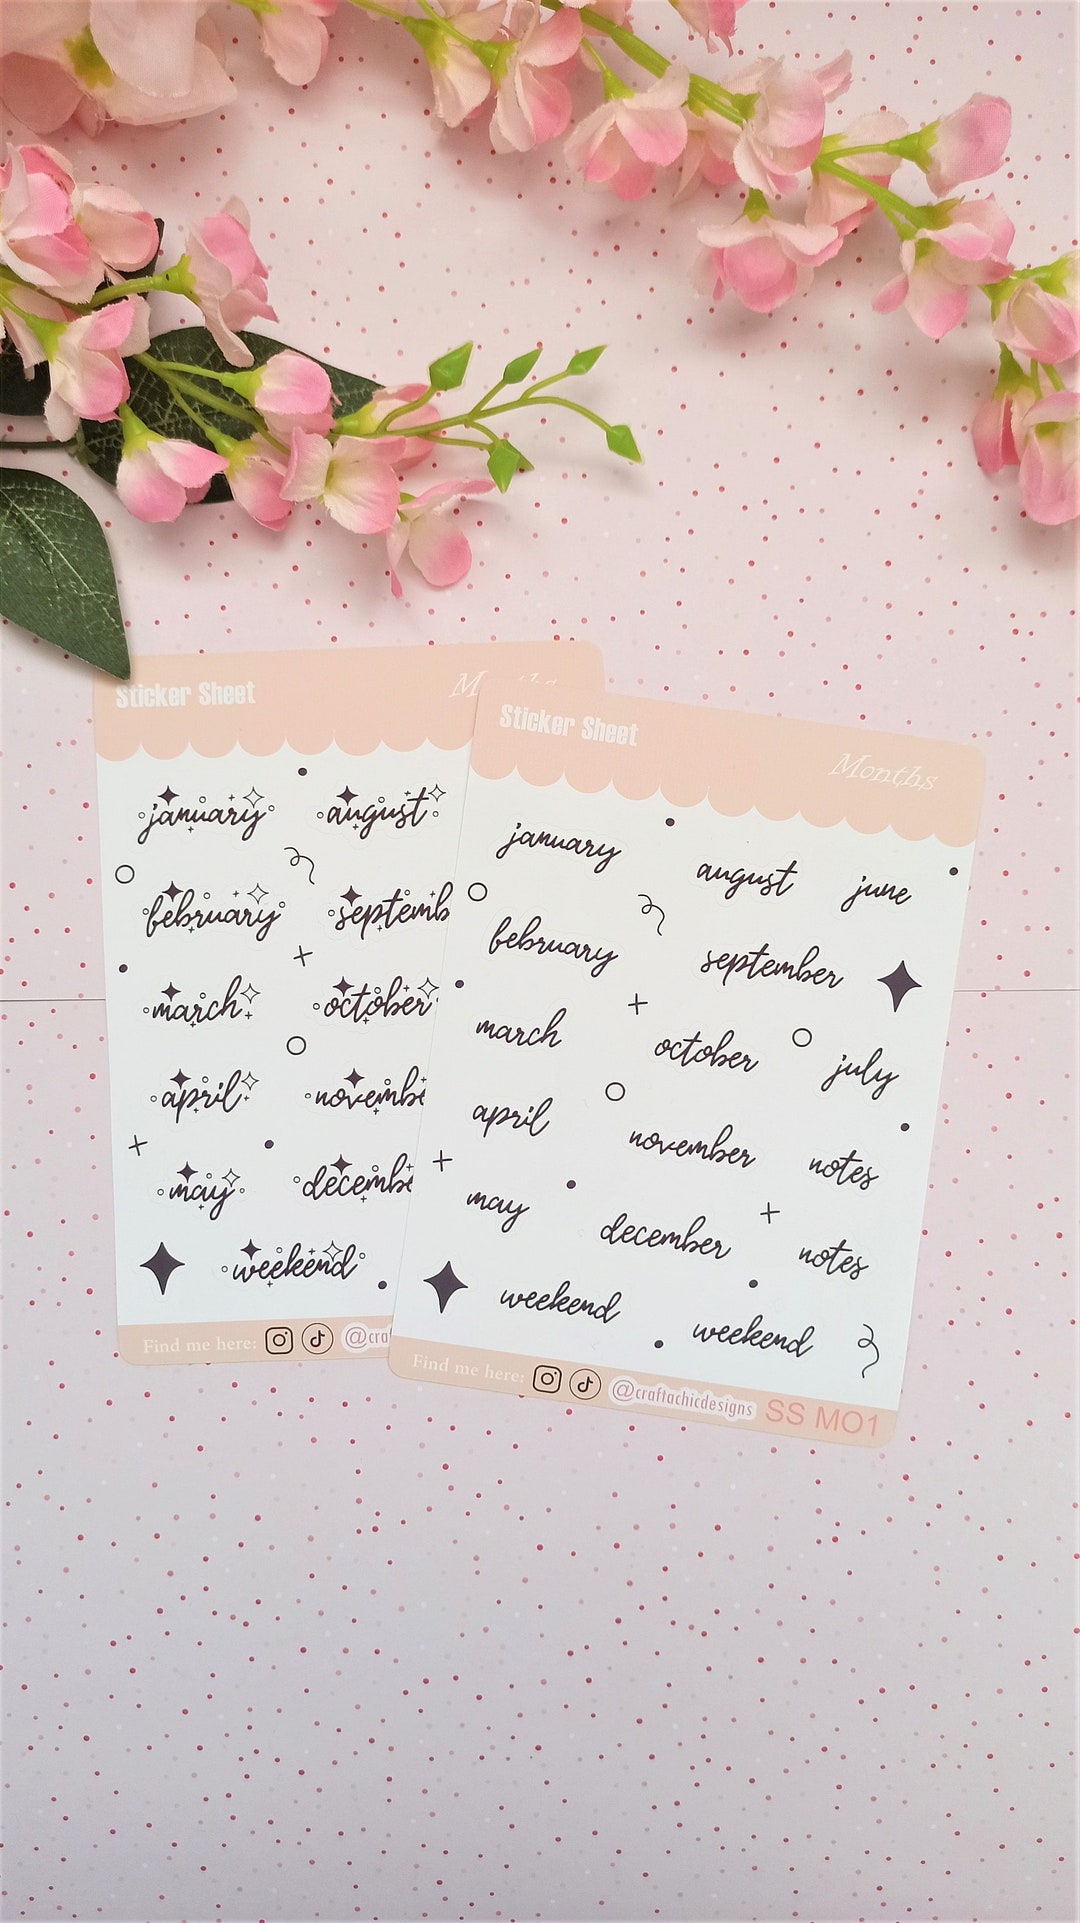 Sticker Sheet
january august
february
march october
april
may
weekend
Find me here:
Sticker Sheet Months
january august june
february september
march october july
april november notes
may december notes
weekend weekend
Find me here: @craftachicdesigns SS MO1